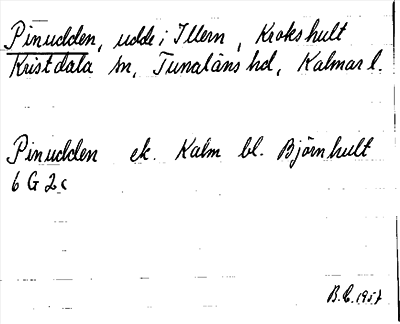 Pinudden, udde i Illern, Krokshult
Kristdala sn, Tunaläns hd, Kalmar l.
Pinudden ek. Kalm bl. Björnhult
6 G 2 c
B.C. 1957